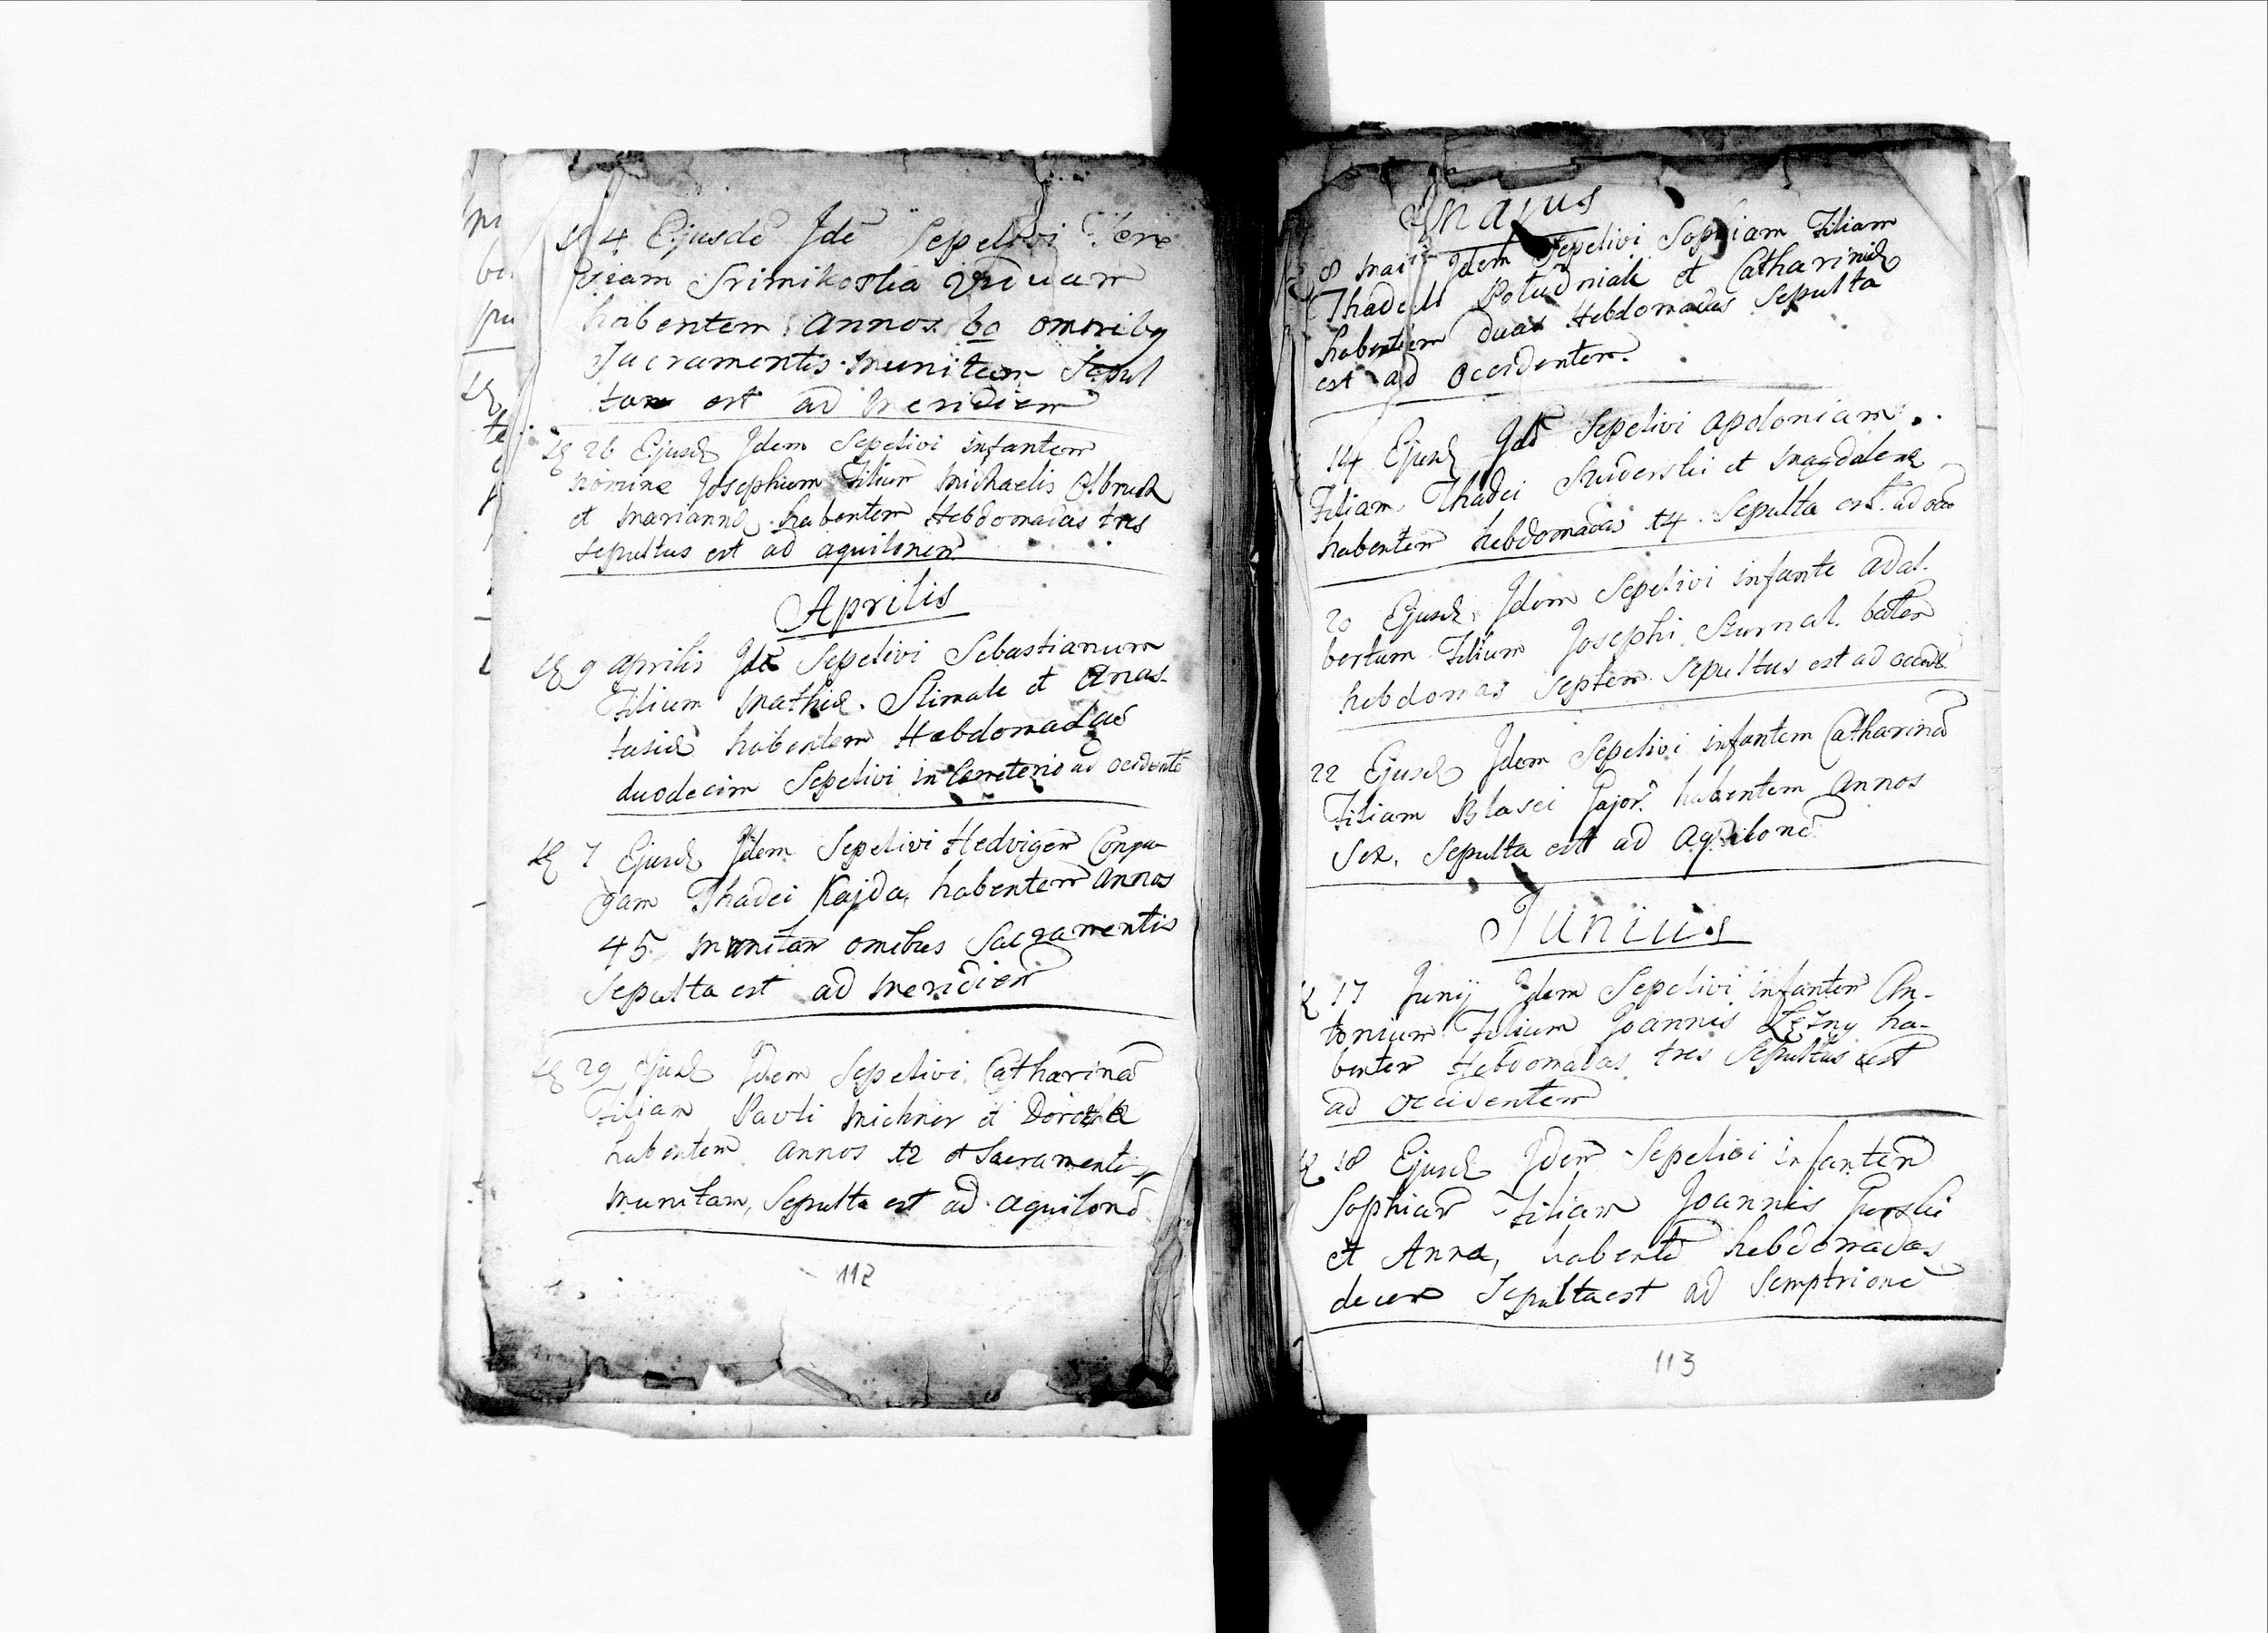 4 Ejusdē Jdē Sepelivi Tere
siam Srimikoska Viduam
habentem annos 60 omnibq
Sacramentis munitam Sepul
tam est ad Meridiem
26 Ejusd Jdem Sepelivi infantem
nomine Josephum Filium Michaelis Olbruch
et Marianne habentem Hebdomadas tres
Sepultus est ad aquilonem
Aprilis
9 aprilis Jdē Sepelivi Sebastianum
Filium Mathie Slimak et Anas-
tasie habentem Hebdomadas
duodecim Sepelivi in Cemeterio ad ocidentē
7 Ejusd Jdem Sepelivi Hedvigem Conju-
gam Thadei Kajda, habentem annos
45 munitam omibus Sacramentis
Sepulta est ad Meridiem
29 Ejusd Jdem Sepelivi Catharinā
Filiam Pavli Michner et
habentem annos 12 et Sacramentis
munitam, Sepulta est ad aquilonē
112
Mayus
8 Maii Jdem Sepelivi Sophiam Filiam
Thadei Poludniak et Catharine
habentem duas Hebdomadas Sepulta
est ad Occidentem
14 Ejusd Jdē Sepelivi Apoloniam
Filiam Thadei et Magdalene
habentem hebdomadas 14 Sepulta est ad
20 Ejusd Jdem Sepelivi infante Adal-
bertum Filium Josephi
hebdomas Septem Sepultus est ad
22 Ejusd Jdem Sepelivi infantem Catharinā
Filiam Blasei Gajor habentem Annos
Sex, Sepulta est ad Aqvilonē
Junius
17 Junij Jdem Sepelivi infantem An-
tonium Filium Joannis Lężny ha-
bentem Hebdomadas tres Sepultus est
ad Occidentem
18 Ejusd Jdem Sepelivi infantem
Sophiam Filiam Joannis Gorski
et Anna, habentē hebdomadas
decem Sepulta est ad Semptrionē
113